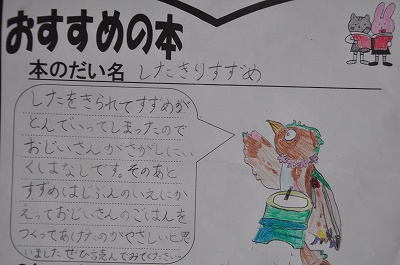 おすすめの本
本のだい名 したきりすずめ
したをきられてすずめが
とんでいってしまったので
おじいさんがさがしにい
くはなしです。そのあと
すずめはじぶんのいえにか
えっておじいさんのごはんを
つくってあげたのがやさしいと思
いました。ぜひ読んでみてください。